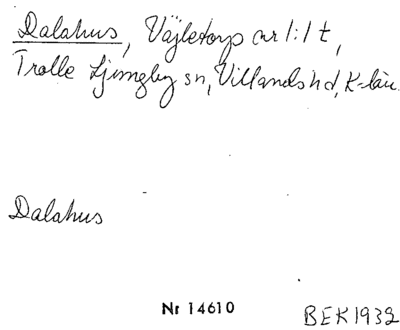 Dalahus, Väjletorp nr 1:1 t,
Trolle Ljungby sn, Villands hd, K-län.
Dalahus
Nr 14610
BEK1932